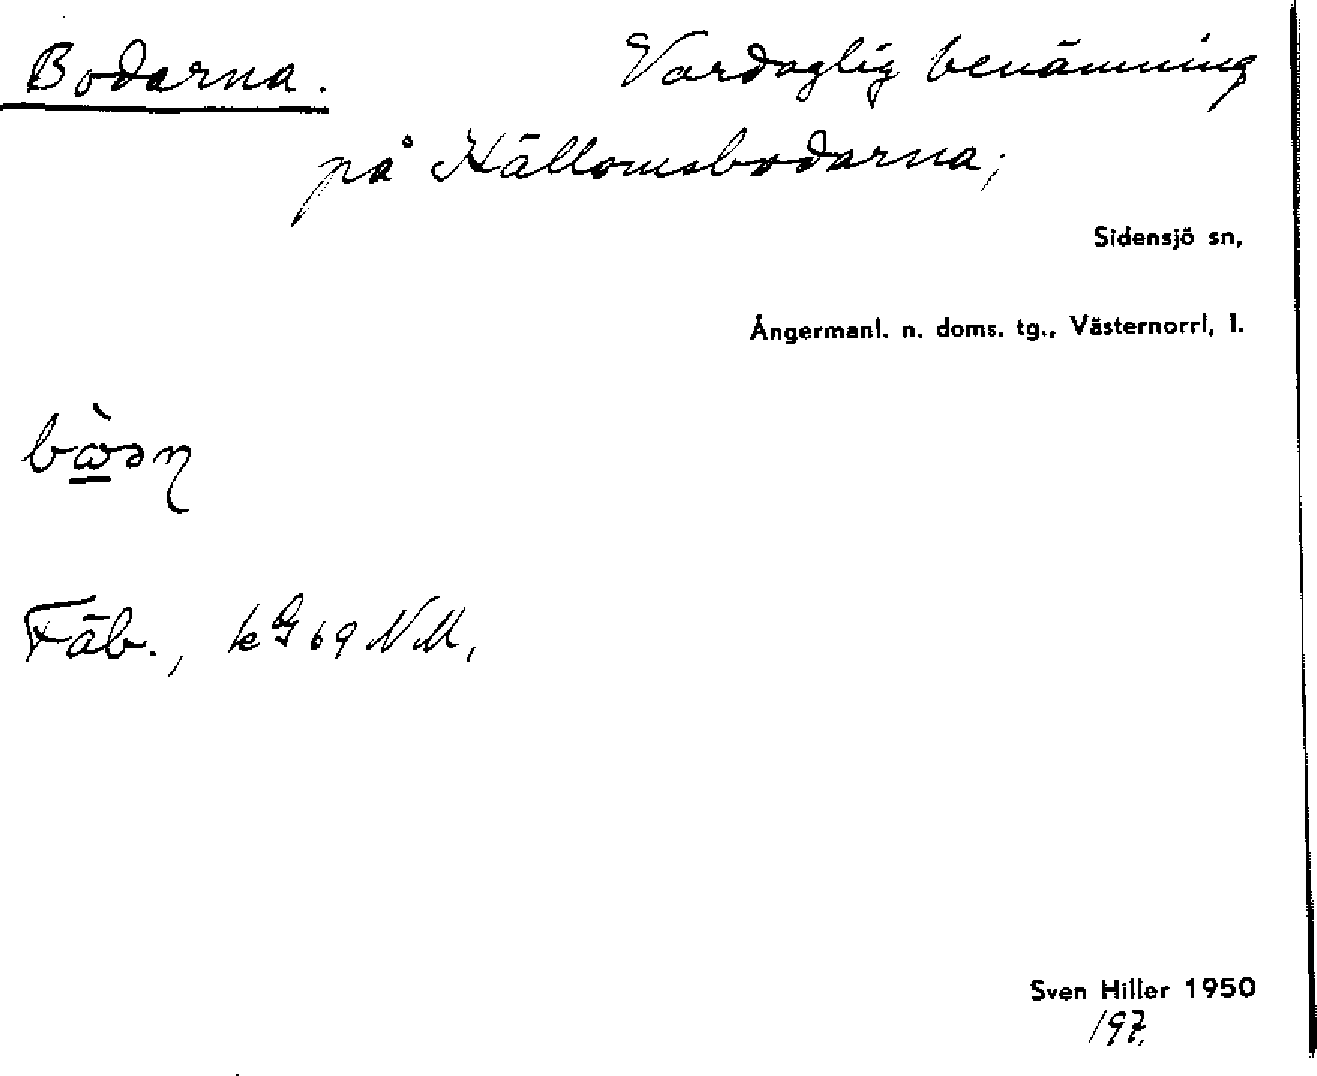 Bodarna. Vardaglig benämning
på Hällomsbodarna;
Sidensjö sn,
Ångermanl. n. doms. tg., Västernorrl, l.
Fäb., 69 NM,
Sven Hiller 1950
197.